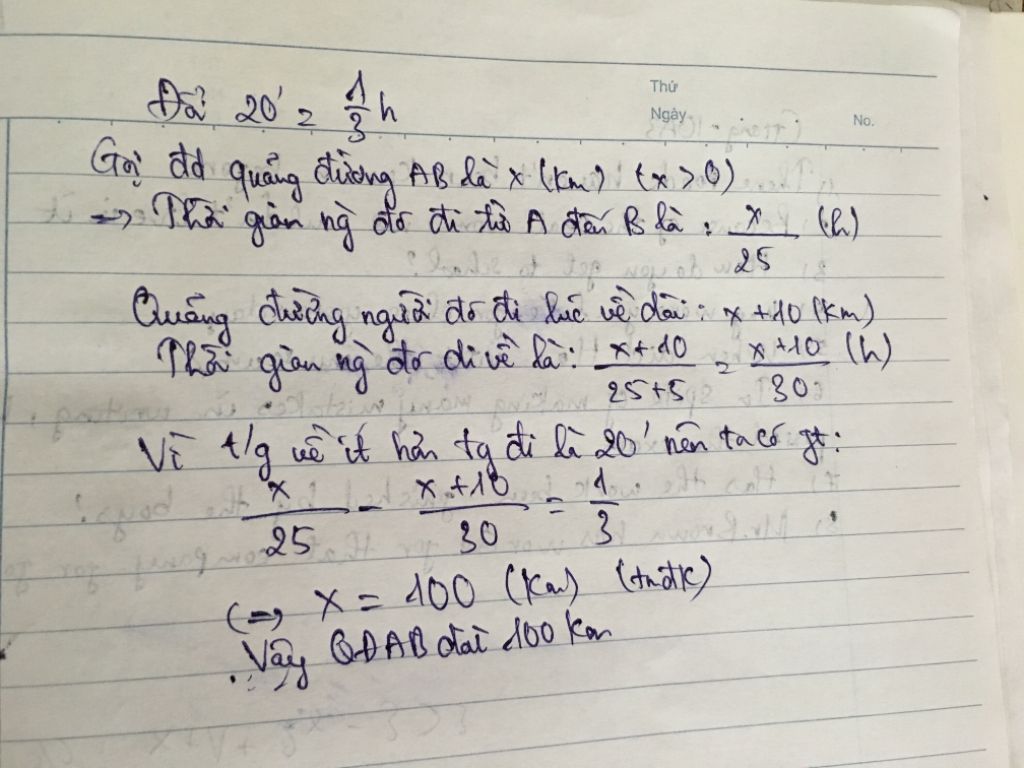 Thứ
Ngày
No.
Đổi 20' = 1/3 h
Gọi đd quãng đường AB là x (km) (x > 0)
=> Thời gian ng đó đi từ A đến B là : x/25 (h)
Quãng đường người đó đi lúc về dài : x + 10 (km)
Thời gian ng đó đi về là : x + 10/25 + 5 = x + 10/30 (h)
Vì t/g về ít hơn tg đi là 20' nên ta có pt :
x/25 - x + 10/30 = 1/3
<=> x = 100 (km) (tmđk)
Vậy QĐAB dài 100 km